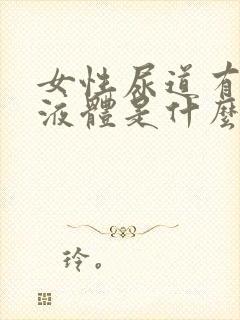 女性尿道有
液體是什麼
玲。